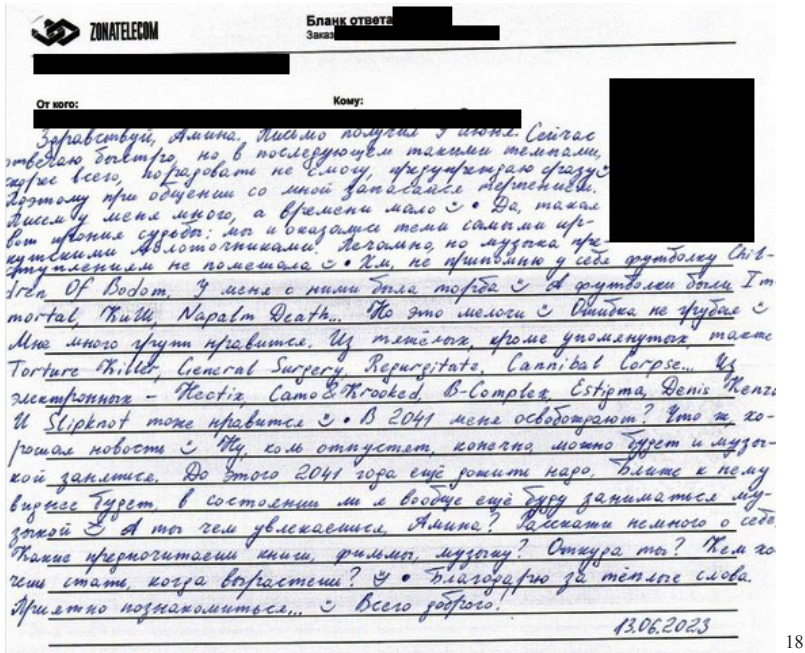 ZONATELECOM
Бланк ответа
Заказ
От кого:
Кому:
Здравствуй, Амина. Письмо получил 9 июня. Сейчас
отвечаю быстро, но в последующем такими темпами,
скорее всего, порадовать не смогу, предупреждаю сразу
Поэтому при общении со мной запасайся терпением.
Писем у меня много, а времени мало • Да, такая
вот ирония судьбы: мы и оказались теми самыми ир-
кутскими молоточниками. Печально, но музыка пре-
ступлениям не помешала • Хм, не припомню у себя футболку Chil-
dren Of Bodom, У меня с ними была торба А футболки были Im
mortal, Napalm Death... Но это мелочи Ошибка не грубая
Мне много групп нравится. Из тяжёлых, кроме упомянутых, также
Torture Killer, General Surgery, Regurgitate, Cannibal Corpse... Из
электронных – Hectix, Camo & Krooked, B-Complex, Estigma, Denis Kenzo
И Slipknot тоже нравится • В 2041 меня освобождают? Что ж, хо-
рошая новость Ну, коль отпустят, конечно, можно будет и музы-
кой заняться. До этого 2041 года ещё дожить надо, Ближе к нему
виднее будет, в состоянии ли я вообще ещё буду заниматься му-
зыкой А ты чем увлекаешься, Амина? Расскажи немного о себе,
Какие предпочитаешь книги, фильмы, музыку? Откуда ты? Кем хо-
чешь стать, когда вырастешь? • Благодарю за тёплые слова.
Приятно познакомиться... Всего доброго!
13.06.2023
18